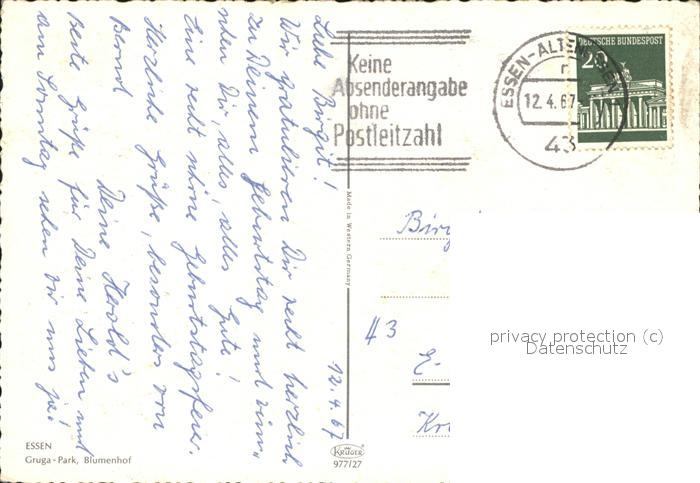 Keine
Absenderangabe
ohne
Postleitzahl
ESSEN-ALTENESSEN
r
12.4.67
43
DEUTSCHE BUNDESPOST
20
12.4.67
Liebe Birgit!
Wir gratulieren Dir recht herzlich
zu Deinem Geburtstag und
Dir, alles, alles Gute!
Eine recht schöne Geburtstagsfeier.
Herzliche Grüße, besonders von
Bernd
Deine Herold's
Beste Grüße für Deine Lieben und
am Sonntag sehen wir uns ja!
Made in Western Germany
Birg
43
E.
Kr
privacy protection (c)
Datenschutz
ESSEN
Gruga-Park, Blumenhof
KRÜGER
977/27